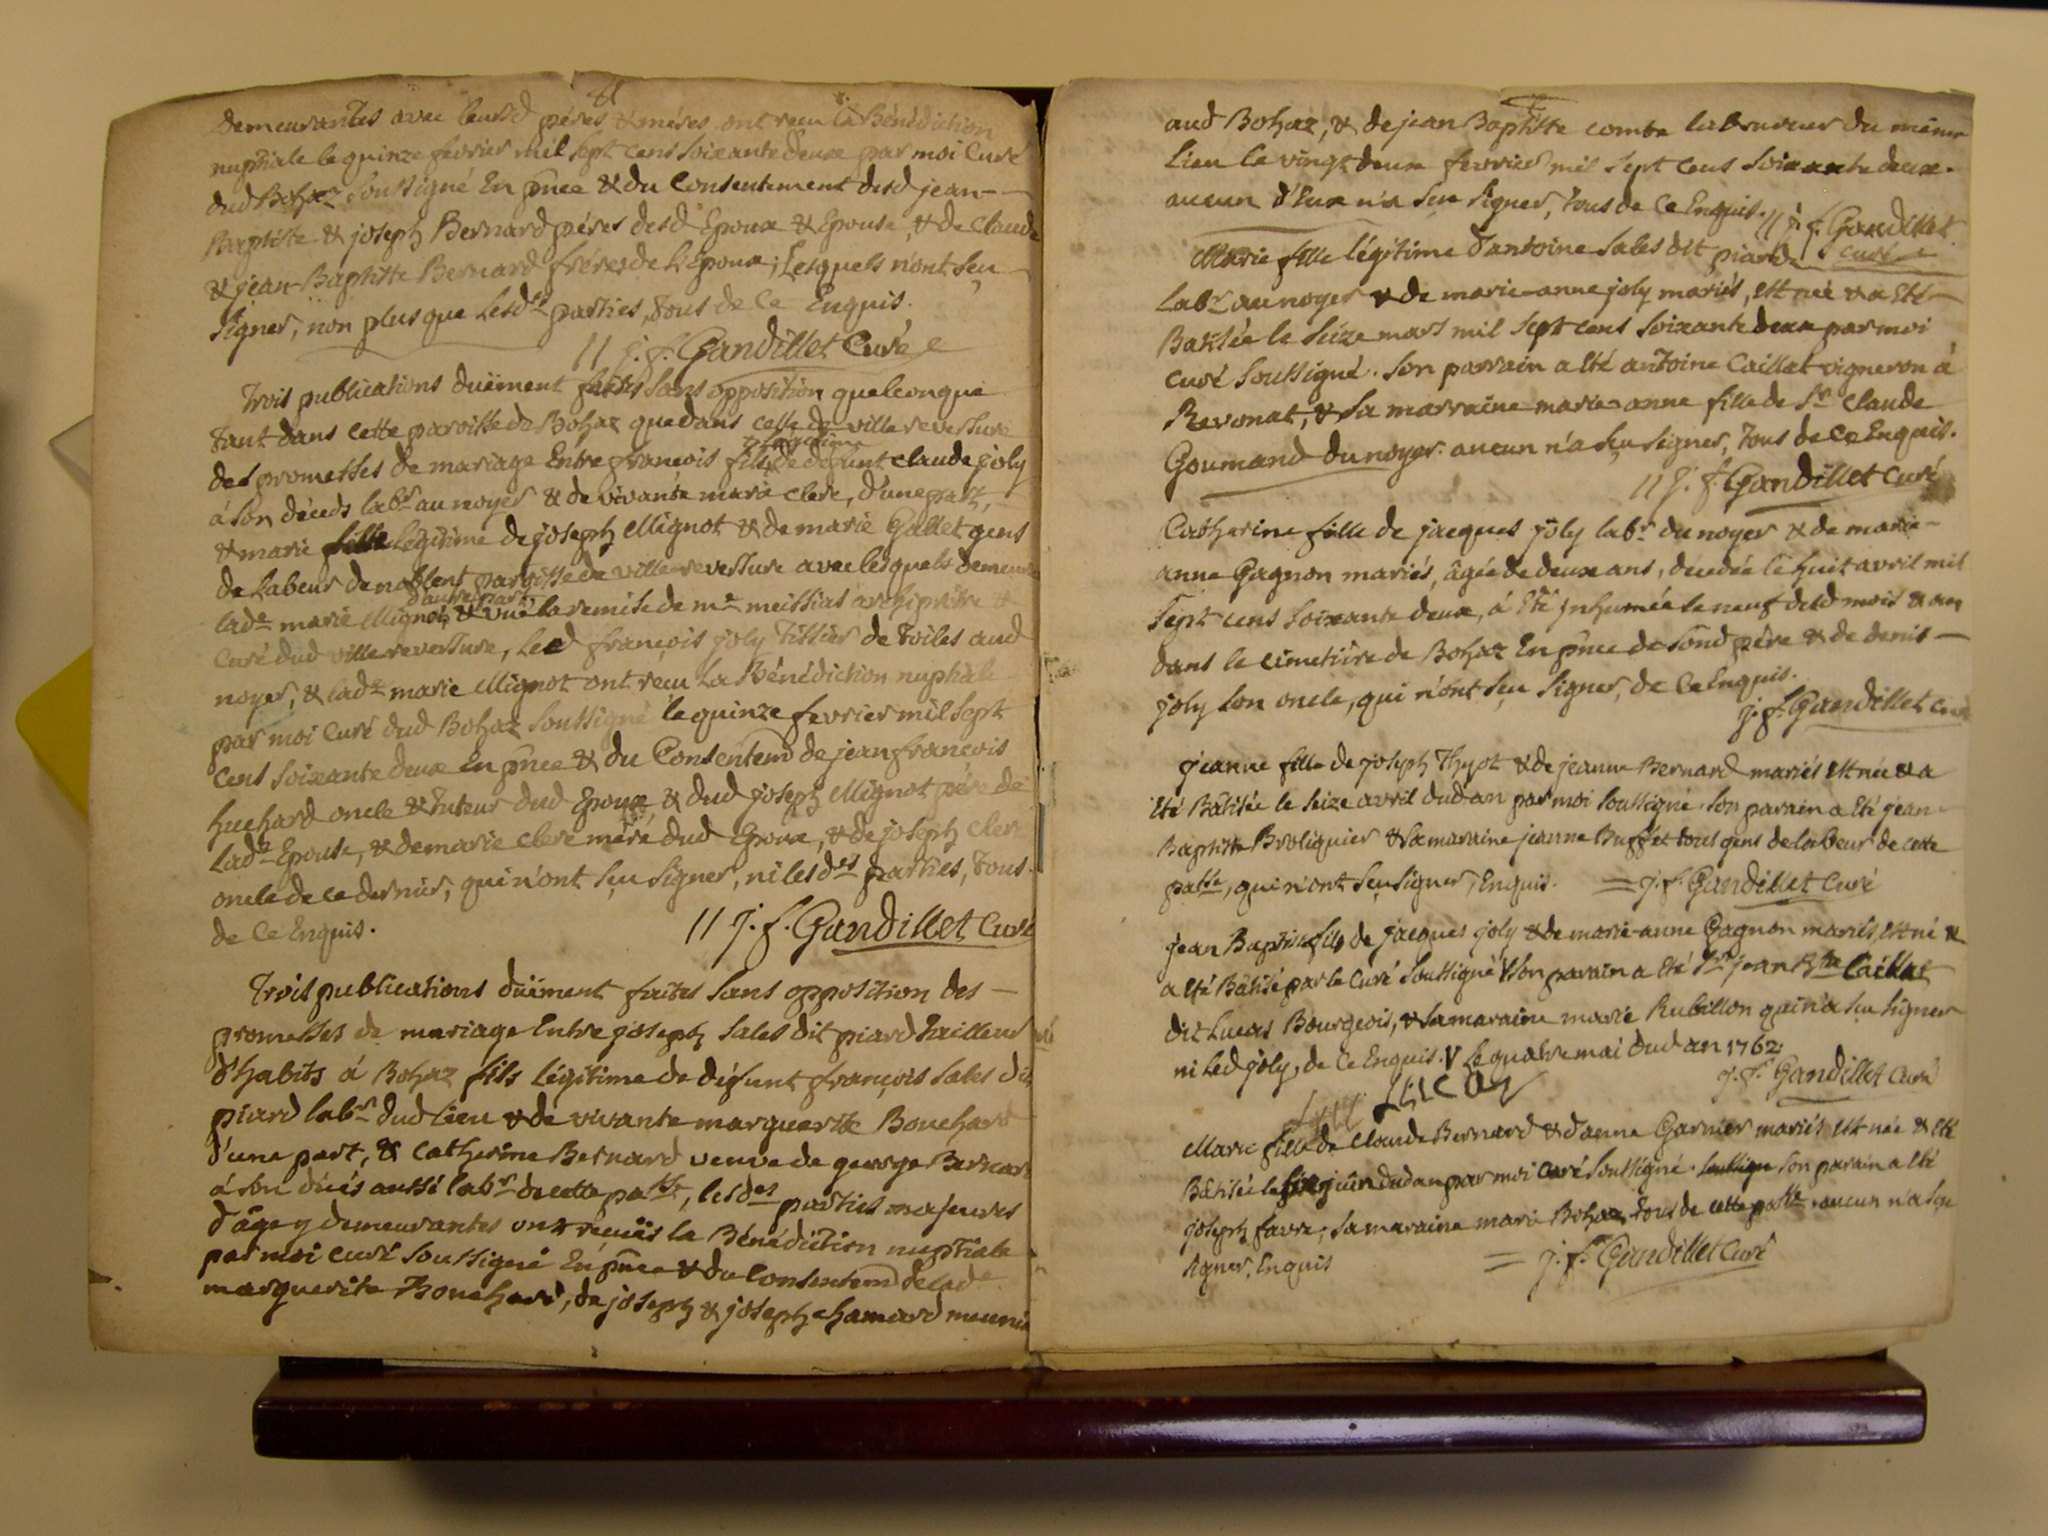 demeurantes avec leursd péres & méres ont recu la Bénédiction
nuptiale le quinze fevrier mil sept cens soixante deux par moi Curé
dud Bohaz soussigné En pnce & du Consentement desd jean-
Baptiste & joseph Bernard péres desd Epoux & Epouse, & de Claude
& jean-Baptiste Bernard fréres de L'Epoux; Lesquels n'ont sçu
signer, non plus que Lesdes parties, tous de Ce Enquis.
j. f. Gandillet Curé
Trois publications duëment faites sans opposition quelconque
tant dans cette paroisse de Bohaz que dans celle de villereversure
des promesses de mariage Entre françois fils légitime de défunt claude joly
á son décéds labr au noyer & de vivante marie clerc, d'une part,
& marie fille légitime de joseph Mignot & de marie Gallet gens
de Labeur de noblent paroisse de villereversure avec lesquels demeure
lade marie Mignot, d'autre part & vuë la remise de me meissias archiprêtre &
Curé dud villereversure, Led françois joly tissier de toiles aud
noyer, & lade marie Mignot ont recu La Bénédiction nuptiale
par moi Curé dud Bohaz soussigné le quinze fevrier mil sept
cens soixante deux En pnce & du Consentem de jean françois
huchard oncle & tuteur dud Epoux, & dud joseph Mignot pére de
Lade Epouse, & de marie clerc mére dud Epoux, & de joseph clerc
oncle de ce dernier, qui n'ont sçu signer, ni lesdes parties, tous
de Ce Enquis.
j. f. Gandillet Curé
Trois publications duëment faites sans opposition des
promesses de mariage Entre joseph Sales dit piard tailleur
d'habits á Bohaz fils légitime de défunt françois Sales dit
piard labr dud lieu & de vivante marguerite Bouchard
d'une part, & Catherine Bernard veuve de george Bernard
á son décés aussi labr de cette passe, lesdes parties majeures
d'âge y demeurantes ont recuës la Bénédiction nuptiale
par moi curé soussigné En pnce & du Consentem de lade
marguerite Bouchard, de joseph & joseph chamard meunier
aud Bohaz, & de jean Baptiste combe laboureur du même
Lieu le vingt deux fevrier mil sept cens soixante deux.
aucun d'Eux n'a sçu signer, tous de Ce Enquis. j. f. Gandillet
curé
Marie fille légitime d'antoine Sales dit piard
Labr au noyer & de marie-anne joly mariés, est née & a Eté
Batisée le seize mars mil sept cens soixante deux par moi
curé soussigné. son parrain a Eté antoine Caillat vigneron á
Revonat, & sa marraine marie-anne fille de Sr Claude
Goumand du noyer. aucun n'a sçu signer, tous de Ce Enquis.
j. f. Gandillet Curé
Catherine fille de jacques joly labr du noyer & de marie-
anne Gagnon mariés, âgée de deux ans, décédée le huit avril mil
sept cens soixante deux, á Eté jnhumée le neuf desd mois & an
dans le cimetiére de Bohaz En pnce de sond pére & de denis
joly son oncle, qui n'ont sçu signer, de Ce Enquis.
j. f. Gandillet curé
jeanne fille de joseph Thyot & de jeanne Bernard mariés est née & a
Eté Bâtisée le seize avril dud an par moi soussigné. son parain a Eté jean-
Baptiste Broliquier & sa maraine jeanne Buffet tous gens de labeur de cette
passe, qui n'ont sçu signer, Enquis. j. f. Gandillet Curé
jean Baptiste fils de jacques joly & de marie-anne Gagnon mariés, est né &
a Eté Bâtisé par le Curé soussigné V son parain a Eté Sr jean Bte Caillat
dit Lucas Bourgeois, & sa maraine marie Rubillon qui n'a sçu signer
ni Led joly, de Ce Enquis. V Le quatre mai dud an 1762.
j. f. Gandillet Curé
Lucas
Marie fille de Claude Bernard & d'anne Garnier mariés est née & Eté
Bâtisée le juin dud an par moi curé soussigné. son parain a Eté
joseph favre; sa maraine marie Bohaz, tous de cette passe. aucun n'a sçu
signer, Enquis j. f. Gandillet Curé